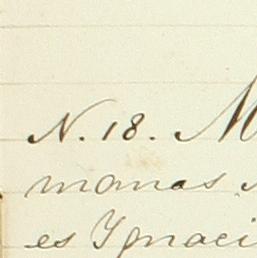 N. 18. M
manas
es Ignaci